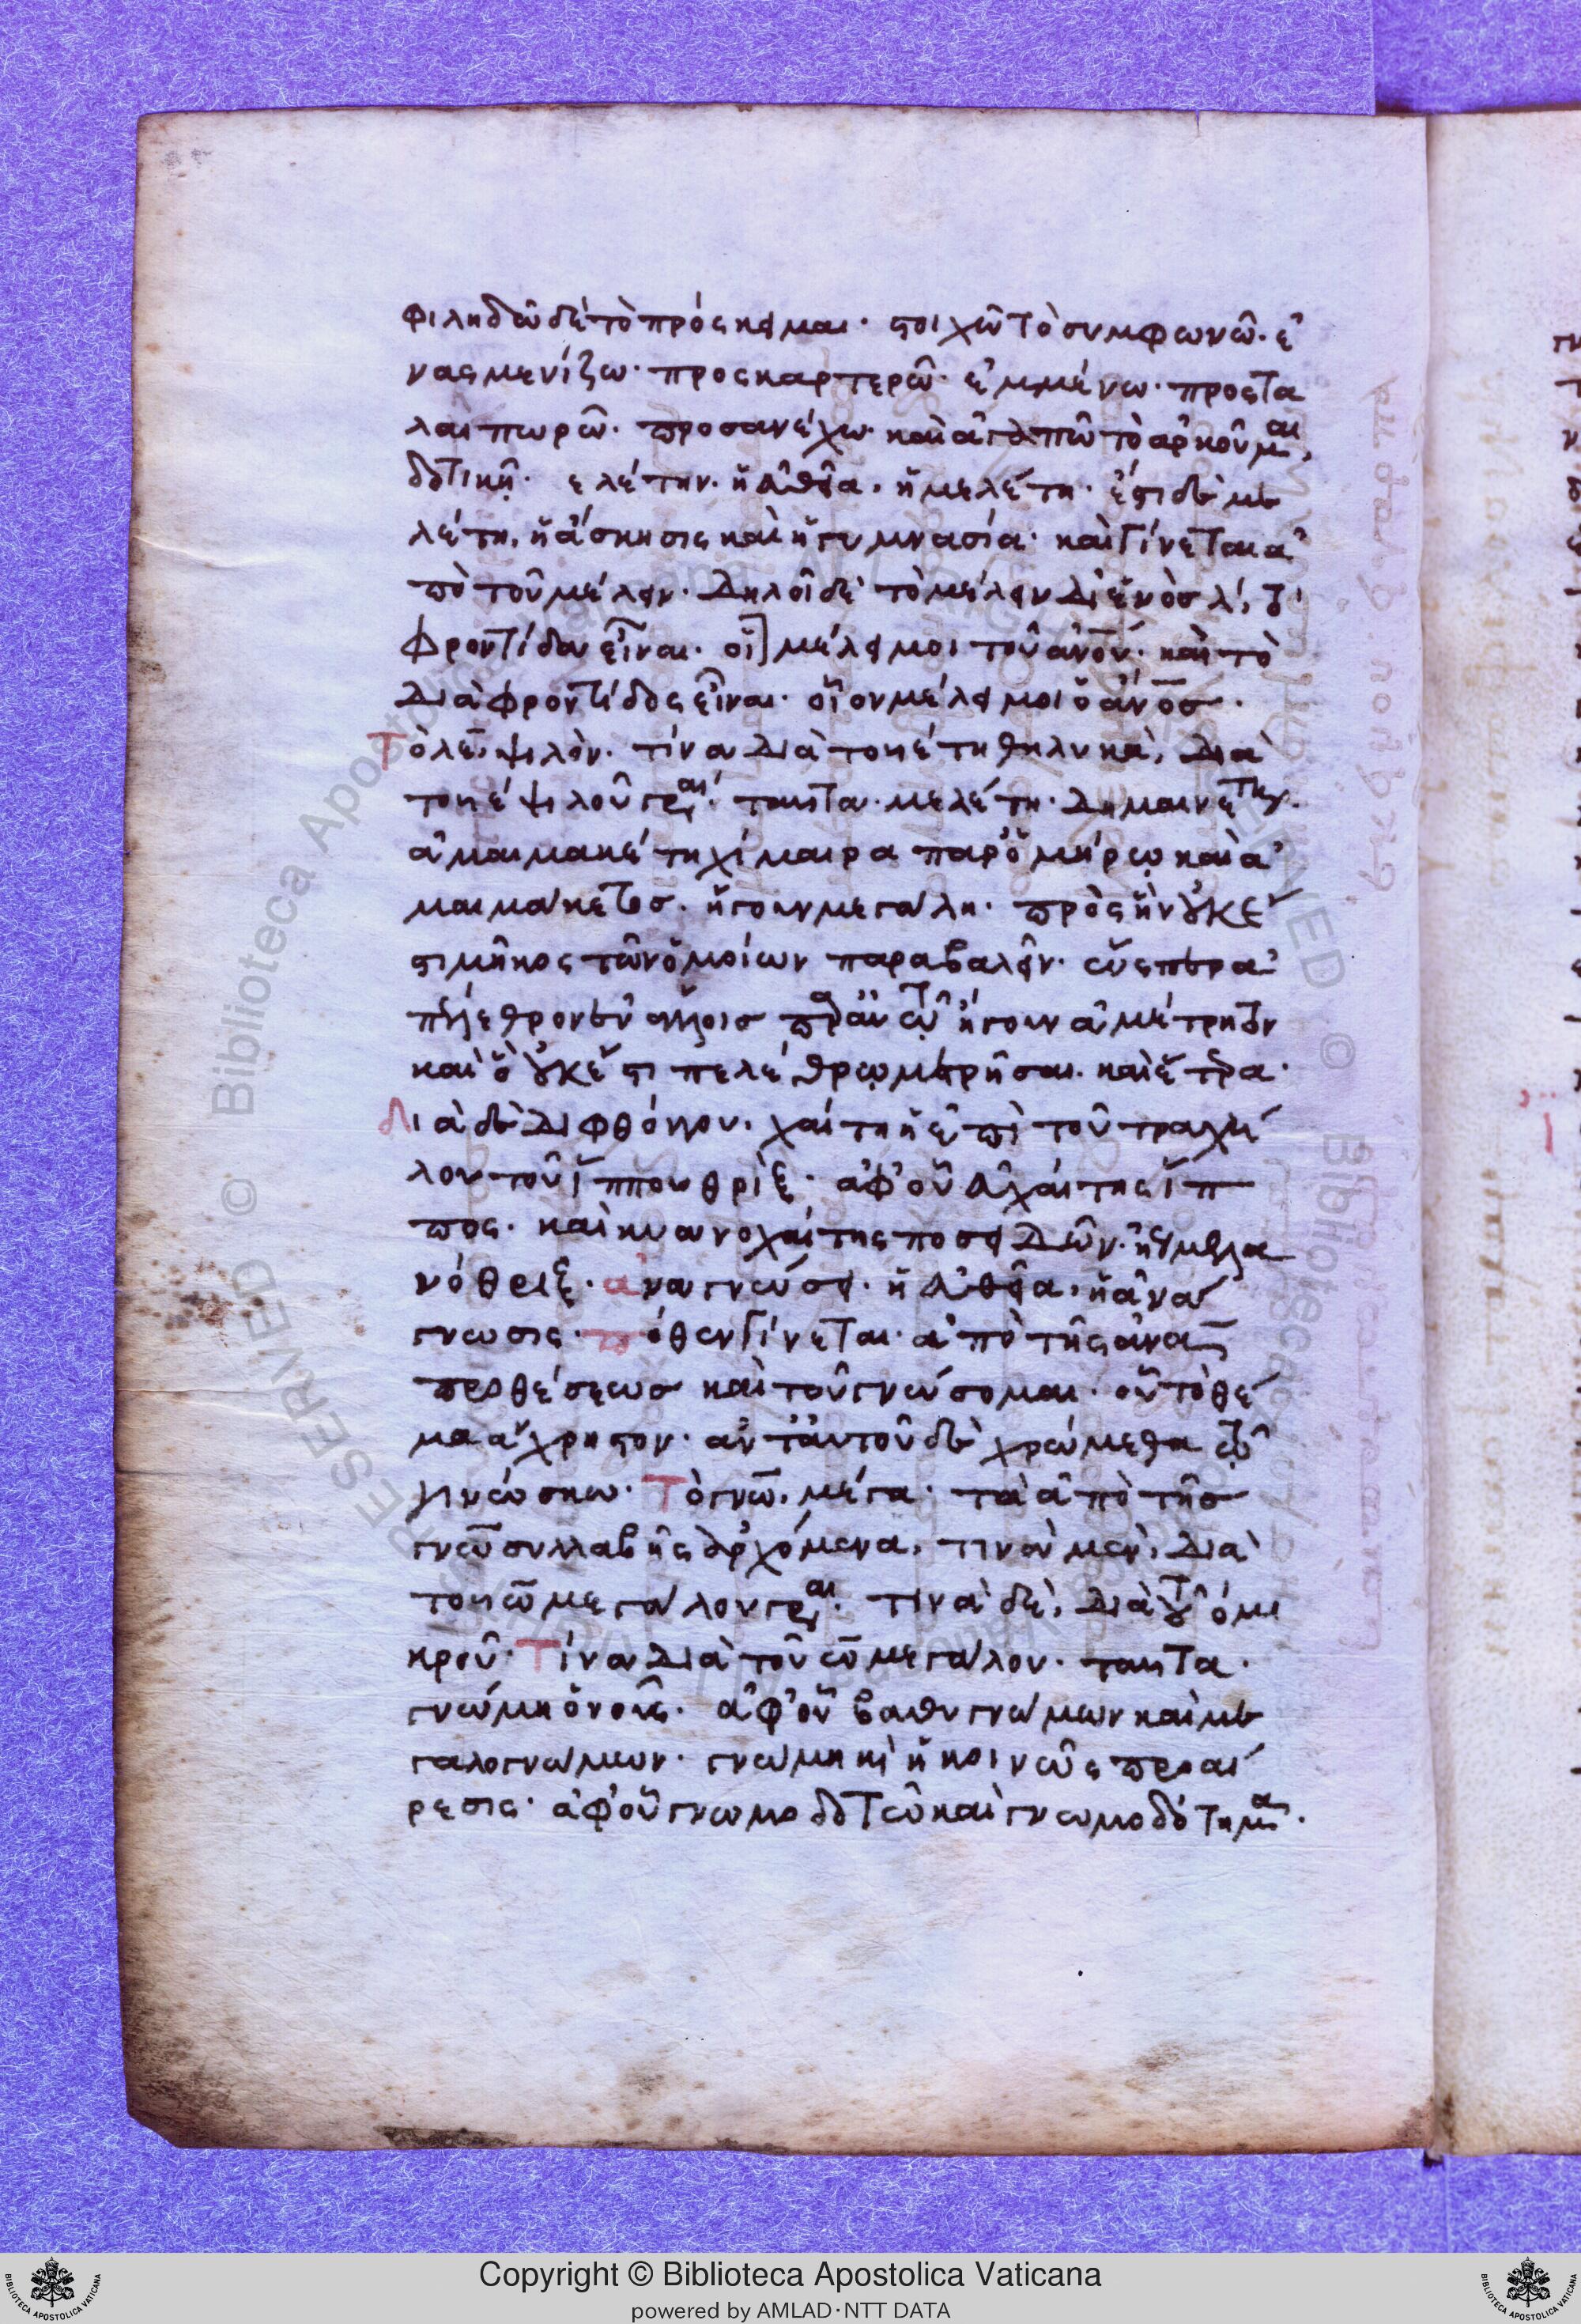 φιληδῶ δὲ τὸ πρόσκειμαι· στοιχῶ τὸ συμφωνῶ· ἐ
νασμενίζω· προσκαρτερῶ· ἐμμένω· προστα
λαιπωρῶ· προσανέχω· καὶ ἀγαπῶ τὸ ἀρκοῦμαι,
δοτικῇ· μελέτην· ἡ εὐθεῖα, ἡ μελέτη· ἔστι δὲ με
λέτη, ἡ ἄσκησις καὶ ἡ γυμνασία· καὶ γίνεται ἀ
πὸ τοῦ μέλειν· δηλοῖ δὲ τὸ μέλειν δι' ἑνὸς λ, τὸ
φροντίδα εἶναι· οἷον μέλει μοι τοῦ ἀνου· καὶ τὸ
διὰ φροντίδος εἶναι· οἷον μέλει μοι ὁ ἀνος·
Τὸ λε, ψιλόν· τίνα διὰ τοῦ ετη θηλυκὰ, διὰ
τοῦ ε ψιλοῦ γράφεται· ταῦτα· μελέτη·
ἀμαιμακέτη χίμαιρα παρ' ὁμήρω καὶ ἀ
μαιμάκετος· ἤγουν μεγάλη· πρὸς ἣν οὐκ ἔ
στι μῆκος τῶν ὁμοίων παραβαλεῖν·
καὶ ὃ οὐκ ἔστι πελέθρω μετρῆσαι· καὶ ἕτερα·
Διὰ δὲ διφθόγγου· χαίτη ἡ ἐπὶ τοῦ τραχή
λου τοῦ ἵππου θρίξ· ἀφ' οὗ εὐχαίτης ἵπ
πος· καὶ κυανοχαίτης ποσειδῶν· ἡ μελα
νόθριξ· ἀναγνώσει· ἡ εὐθεῖα, ἡ ἀνά
γνωσις· πόθεν γίνεται· ἀπὸ τῆς ἀνα
προθέσεως καὶ τοῦ γνώσομαι· οὗ τὸ θέ
μα ἄχρηστον· ἀντ' αὐτοῦ δὲ χρώμεθα τῷ
γινώσκω· Τὸ γνω, μέγα· τὰ ἀπὸ τῆς
γνω συλλαβῆς ἀρχόμενα, τινὰ μὲν, διὰ
τοῦ ω μεγάλου γράφεται· τινὰ δὲ, διὰ τοῦ ο μι
κροῦ· Τίνα διὰ τοῦ ω μεγάλου· ταῦτα·
γνώμη ὁ νοῦς· ἀφ' οὗ βαθυγνώμων καὶ με
γαλογνώμων· γνώμη καὶ ἡ κοινῶς προαί
ρεσις· ἀφ' οὗ γνωμοδοτῶ καὶ γνωμοδότημα·
Copyright © Biblioteca Apostolica Vaticana
powered by AMLAD·NTT DATA